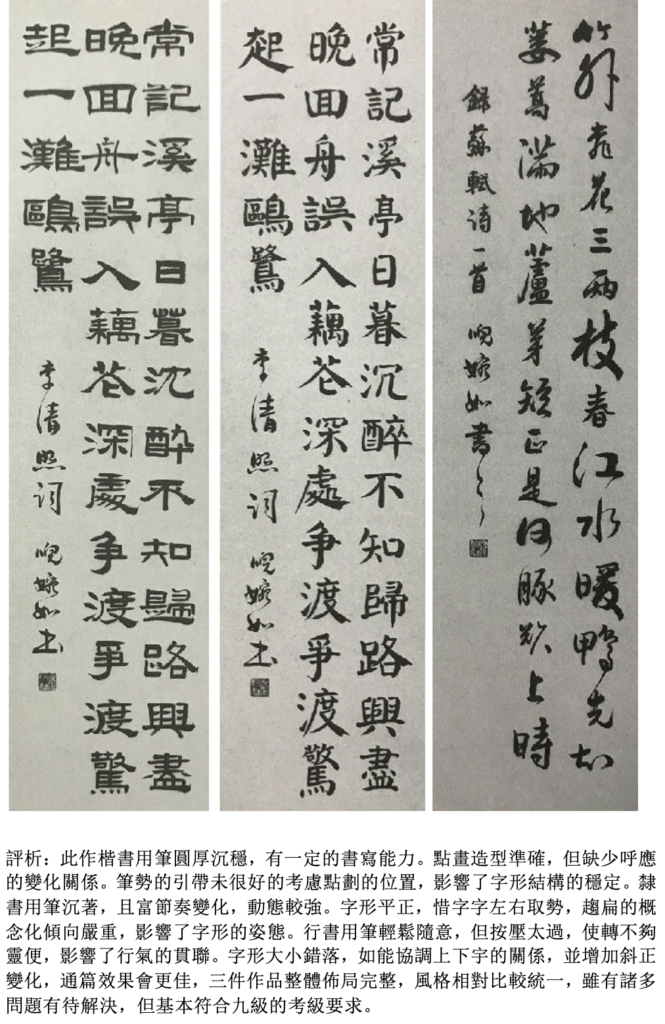 常記溪亭日暮沈醉不知歸路興盡
晚回舟誤入藕花深處爭渡爭渡驚
起一灘鷗鷺 李清照词 倪婉如书
常記溪亭日暮沉醉不知歸路興盡
晚回舟誤入藕花深處爭渡爭渡驚
起一灘鷗鷺 李清照词 倪婉如书
竹外桃花三兩枝春江水暖鴨先知
蔞蒿滿地蘆芽短正是河豚欲上時
録蘇軾诗一首 倪婉如書
評析：此作楷書用筆圓厚沉穩，有一定的書寫能力。點畫造型準確，但缺少呼應
的變化關係。筆勢的引帶未很好的考慮點劃的位置，影響了字形結構的穩定。隸
書用筆沉著，且富節奏變化，動態較強。字形平正，惜字字左右取勢，趨扁的概
念化傾向嚴重，影響了字形的姿態。行書用筆輕鬆隨意，但按壓太過，使轉不夠
靈便，影響了行氣的貫聯。字形大小錯落，如能協調上下字的關係，並增加斜正
變化，通篇效果會更佳，三件作品整體佈局完整，風格相對比較統一，雖有諸多
問題有待解決，但基本符合九級的考級要求。